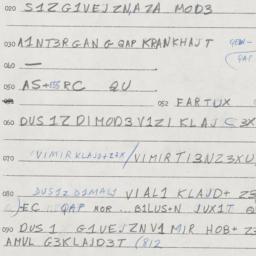 020 S1Z G1VEJZN,AZA MOD3
030 A1NT3RGAN G QAP KRANKHAJT
040 —
050 AS+ RC QU
052 FARTUX
060 DUS1Z D1MOD3V1Z1 KLAJ
070 V1M1RKLAJD+Z3X/V1M1RT13NZ3XU
080 DUS1Z D1MALS V1AL1 KLAJD+ Z3
EC QAP MOR ...B1LUS+N JUX1T
090 DUS1 G1VEJZNV1 M1R HOB+ Z3
AMUL G3KLAJD3T (812